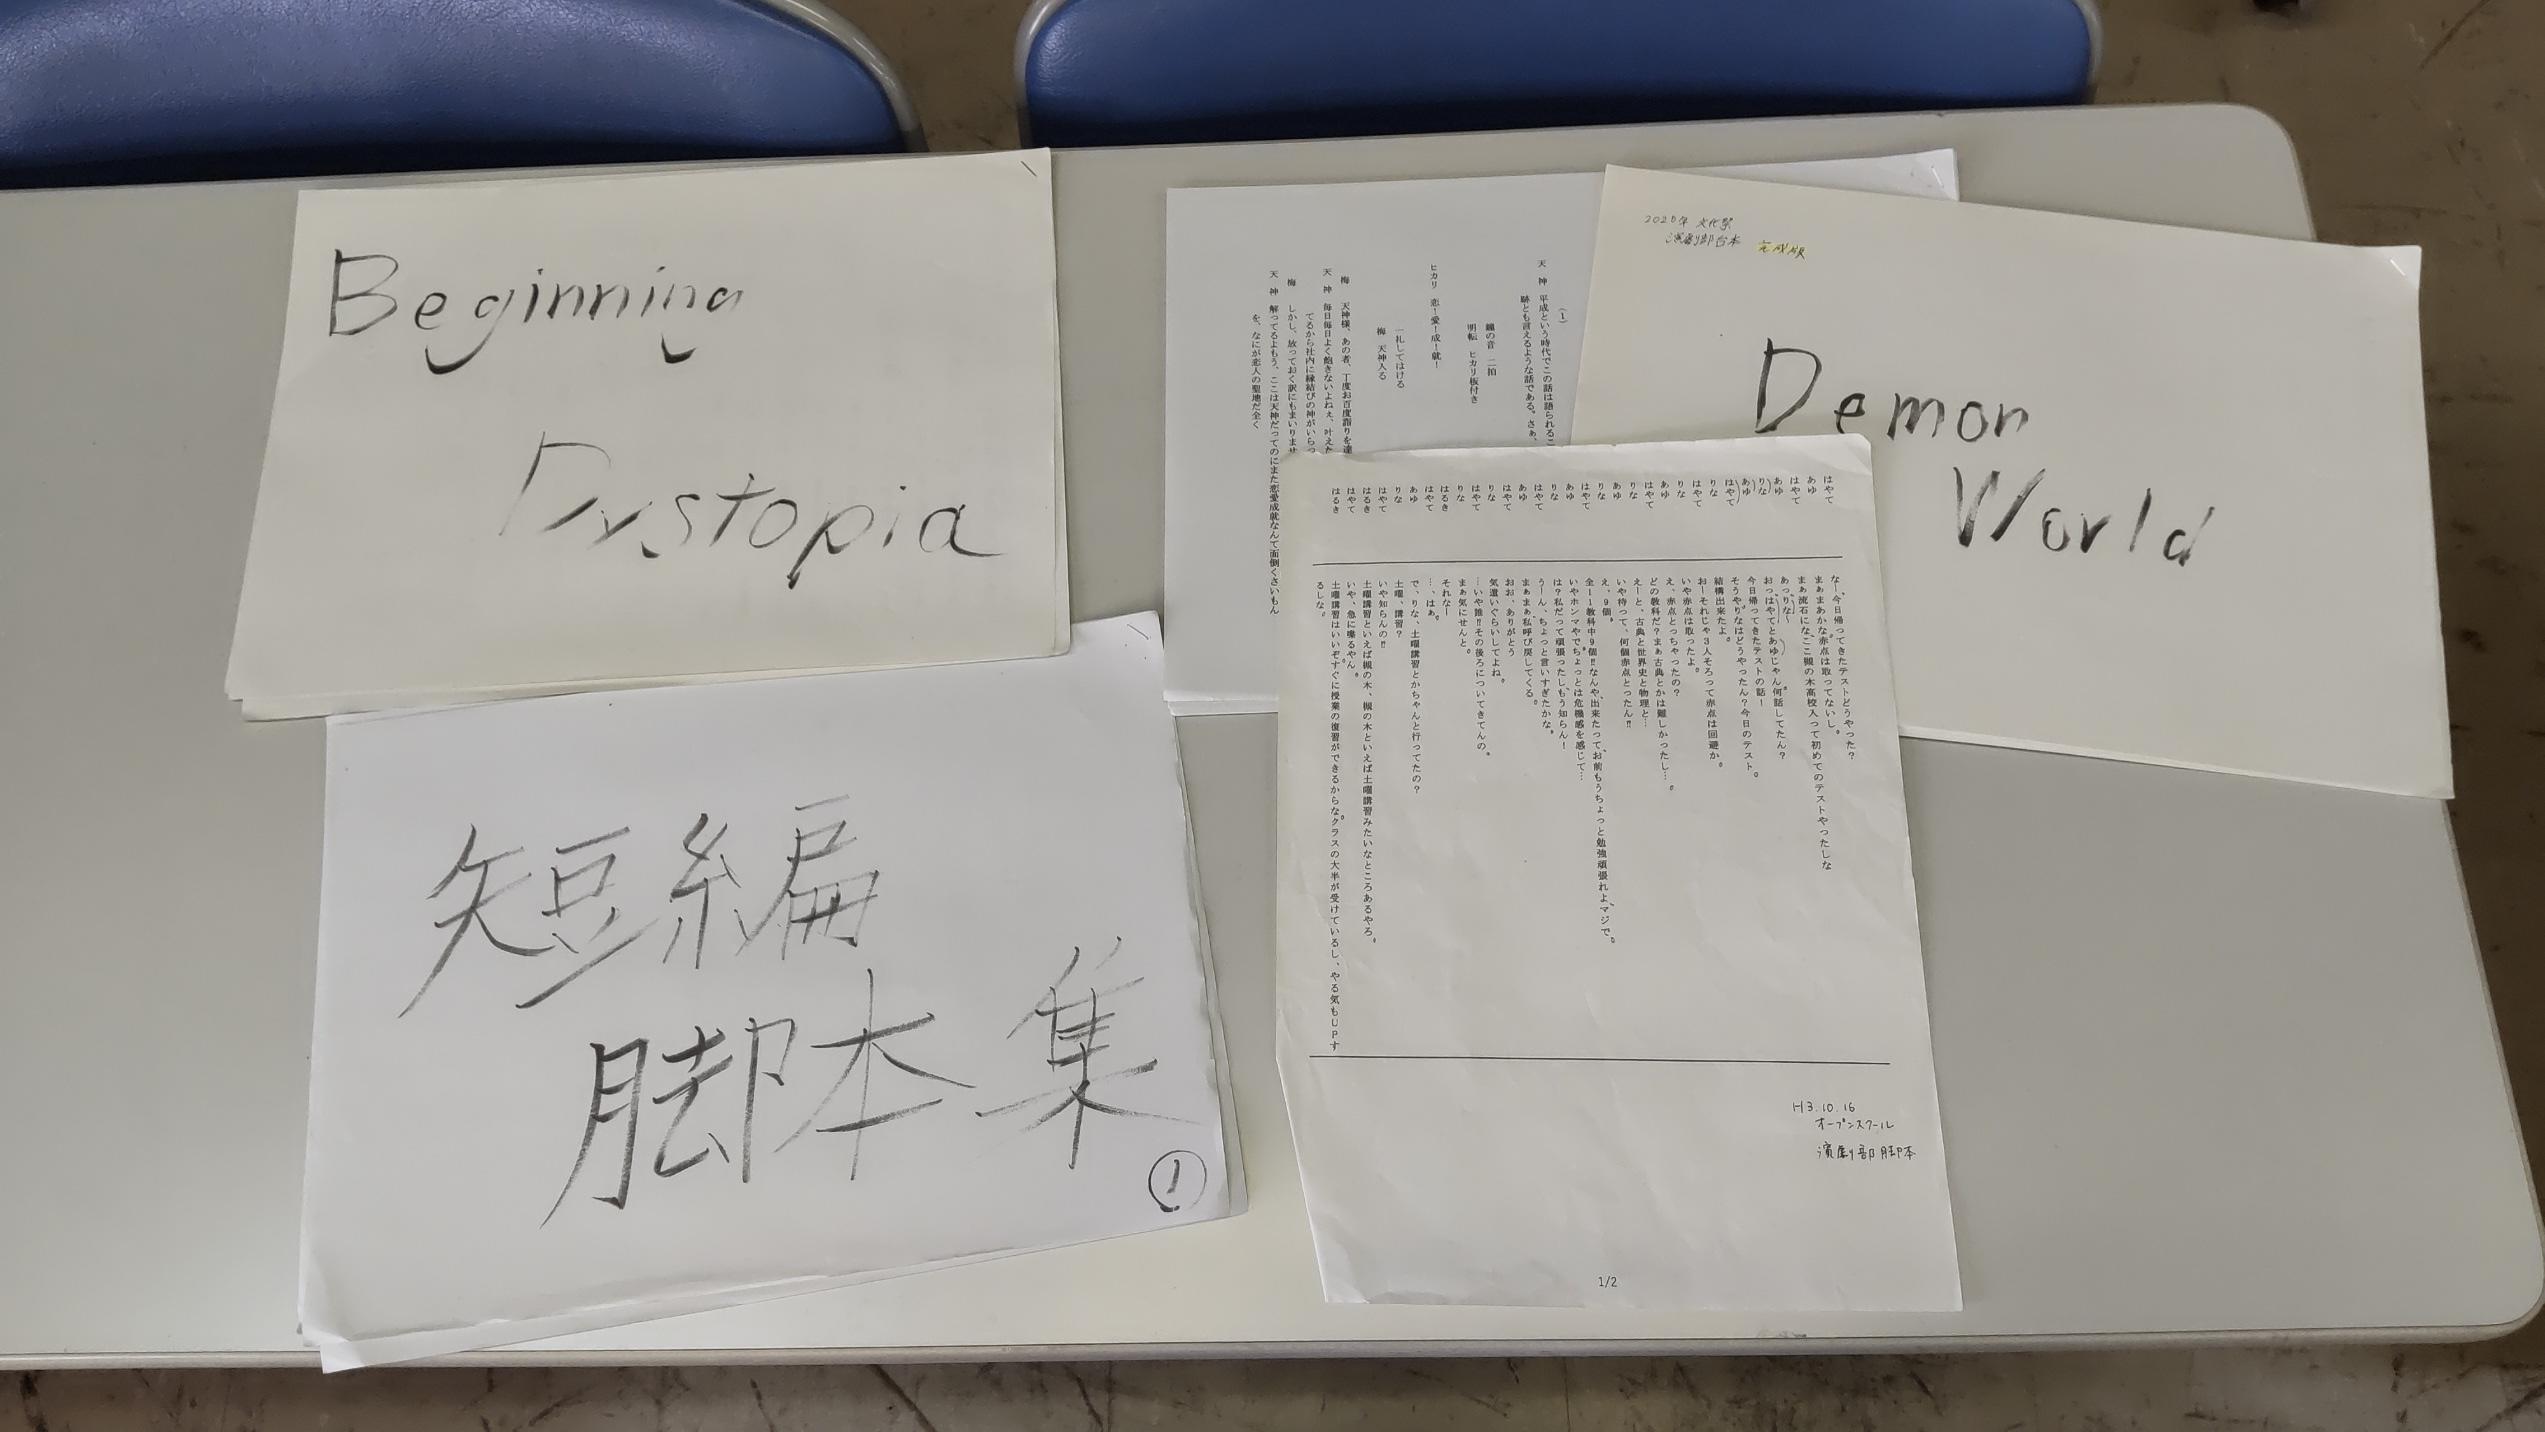 Beginning
Dystopia
短編
脚本集
①
(1)
天神 平成という時代でこの話は語られるこ
跡とも言えるような話である。さぁ、
鐘の音 二拍
明転 ヒカリ板付き
ヒカリ 恋!愛!成!就!
一礼してはける
梅 天神入る
梅 天神様、あの者、丁度お百度詣りを達
天神 毎日毎日よく飽きないよねぇ、叶えた
てるから社内に縁結びの神がいらっ
梅 しかし、放っておく訳にもまいりませ
天神 解ってるよもう、ここは天神だってのにまた恋愛成就なんて面倒くさいもん
を、なにが恋人の聖地だ全く
2020年 文化祭
演劇部台本 完成版
Demon
World
はやて なー、今日帰ってきたテストどうやった?
あゆ まぁまあかな。赤点は取ってないし。
はやて まぁ流石にな、ここ槻の木高校入って初めてのテストやったしな
あゆ あっ、りな〜
りな おっ、はやてとあゆじゃん。何話してたん?
あゆ 今日帰ってきたテストの話!
はやて そうや、りなはどうやったん?今日のテスト。
りな 結構出来たよ。
はやて おーそれじゃ3人そろって赤点は回避か。
りな いや赤点は取ったよ。
あゆ え、赤点とっちゃったの?
はやて どの教科だ?まぁ古典とかは難しかったし…。
りな えーと、古典と世界史と物理と…
あゆ いや待って、何個赤点とったん!!
りな え、9個。
はやて 全11教科中9個!!なんや、出来たって、お前もうちょっと勉強頑張れよ、マジで。
あゆ いやホンマやで。ちょっとは危機感を感じて…
りな は?私だって頑張ったしもう知らん!
はやて うーん、ちょっと言いすぎたかな。
あゆ まぁまぁ、私呼び戻してくる。
はやて おお、ありがとう
りな 気遣いぐらいしてよね。
はやて …いや誰!!その後ろについてきてんの。
りな まぁ気にせんと。
はるき それなー
はやて …、はぁ。
あゆ で、りな、土曜講習とかちゃんと行ってたの?
りな 土曜、講習?
はやて いや知らんの!!
はるき 土曜講習といえば槻の木、槻の木といえば土曜講習みたいなところあるやろ。
はやて いや、急に喋るやん。
はるき 土曜講習はいいぞ。すぐに授業の復習ができるからな。クラスの大半が受けているし、やる気もUPす
るしな。
H3.10.16
オープンスクール
演劇部脚本
1/2